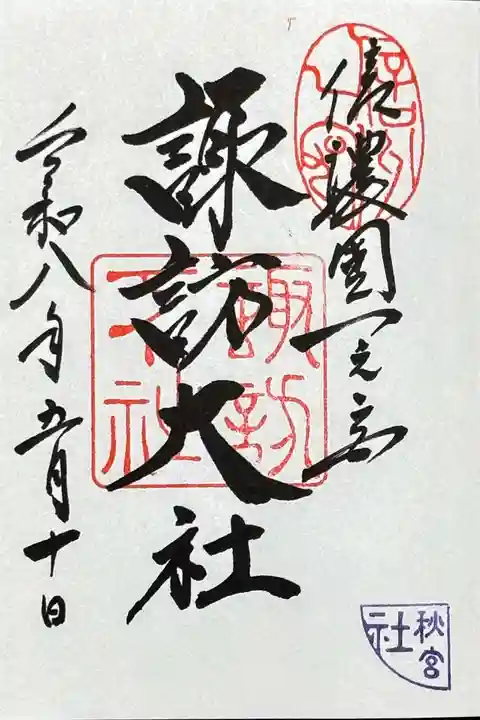 信濃國一之宮
諏訪大社
令和八年五月十日
諏訪
大社
秋宮
社